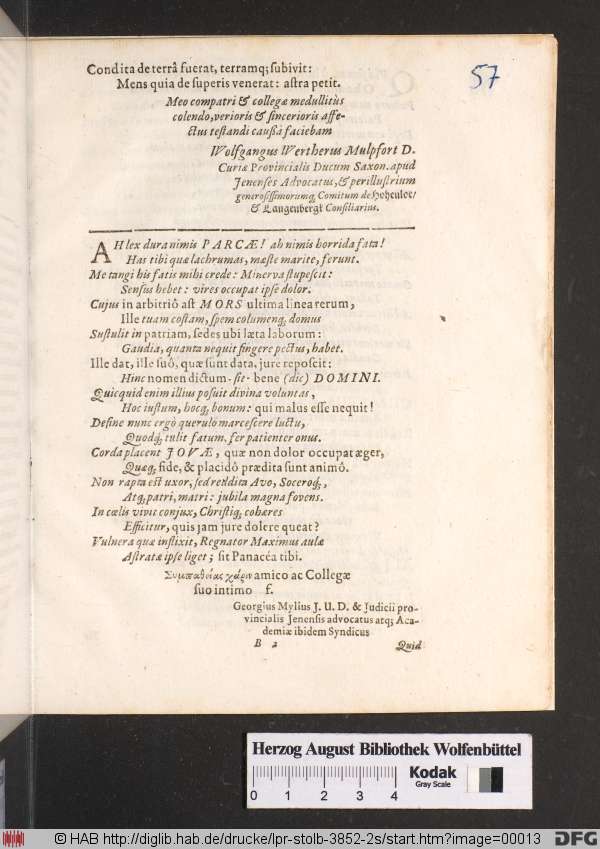 57
Condita de terrâ fuerat, terramq; subivit:
Mens quia de superis venerat: astra petit.
Meo compatri & collegæ medullitùs
colendo, verioris & sincerioris affe-
ctus testandi caußâ faciebam
Wolfgangus Wertherus Mulpfort D.
Curiæ Provincialis Ducum Saxon. apud
Jenenses Advocatus, & perillustrium
generosissimorumq; Comitum de Hohenloe/
& Langenbergk Consiliarius.
AH lex dura nimis PARCÆ! ah nimis horrida fata!
Has tibi quæ lachrumas, mæste marite, ferunt.
Me tangi his fatis mihi crede: Minerva stupescit:
Sensus hebet: vires occupat ipse dolor.
Cujus in arbitriô ast MORS ultima linea rerum,
Ille tuam costam, spem columenq; domus
Sustulit in patriam, sedes ubi læta laborum:
Gaudia, quanta nequit fingere pectus, habet.
Ille dat, ille suô, quæ sunt data, jure reposcit:
Hinc nomen dictum - sit - bene (dic) DOMINI.
Quicquid enim illius posuit divina voluntas,
Hoc iustum, hocq; bonum: qui malus esse nequit!
Define nunc ergò querulo marcescere luctu,
Quodq; tulit fatum, fer patienter onus.
Corda placent JOVÆ, quæ non dolor occupat æger,
Quæq; fide, & placidô prædita sunt animô.
Non rapta est uxor, sed reddita Avo, Soceroq;,
Atq; patri, matri: jubila magna fovens.
In cœlis vivit conjux, Christiq; cohæres
Efficitur, quis jam jure dolere queat?
Vulnera quæ inflixit, Regnator Maximus aulæ
Astratæ ipse liget; sit Panacéa tibi.
Συμπαθείας χάριν amico ac Collegæ
suo intimo f.
Georgius Mylius J. U. D. & Judicii pro-
vincialis Jenensis advocatus atq; Aca-
demiæ ibidem Syndicus
B 2 Quid
Herzog August Bibliothek Wolfenbüttel
0 1 2 3 4
Kodak
Gray Scale
© HAB http://diglib.hab.de/drucke/lpr-stolb-3852-2s/start.htm?image=00013
DFG